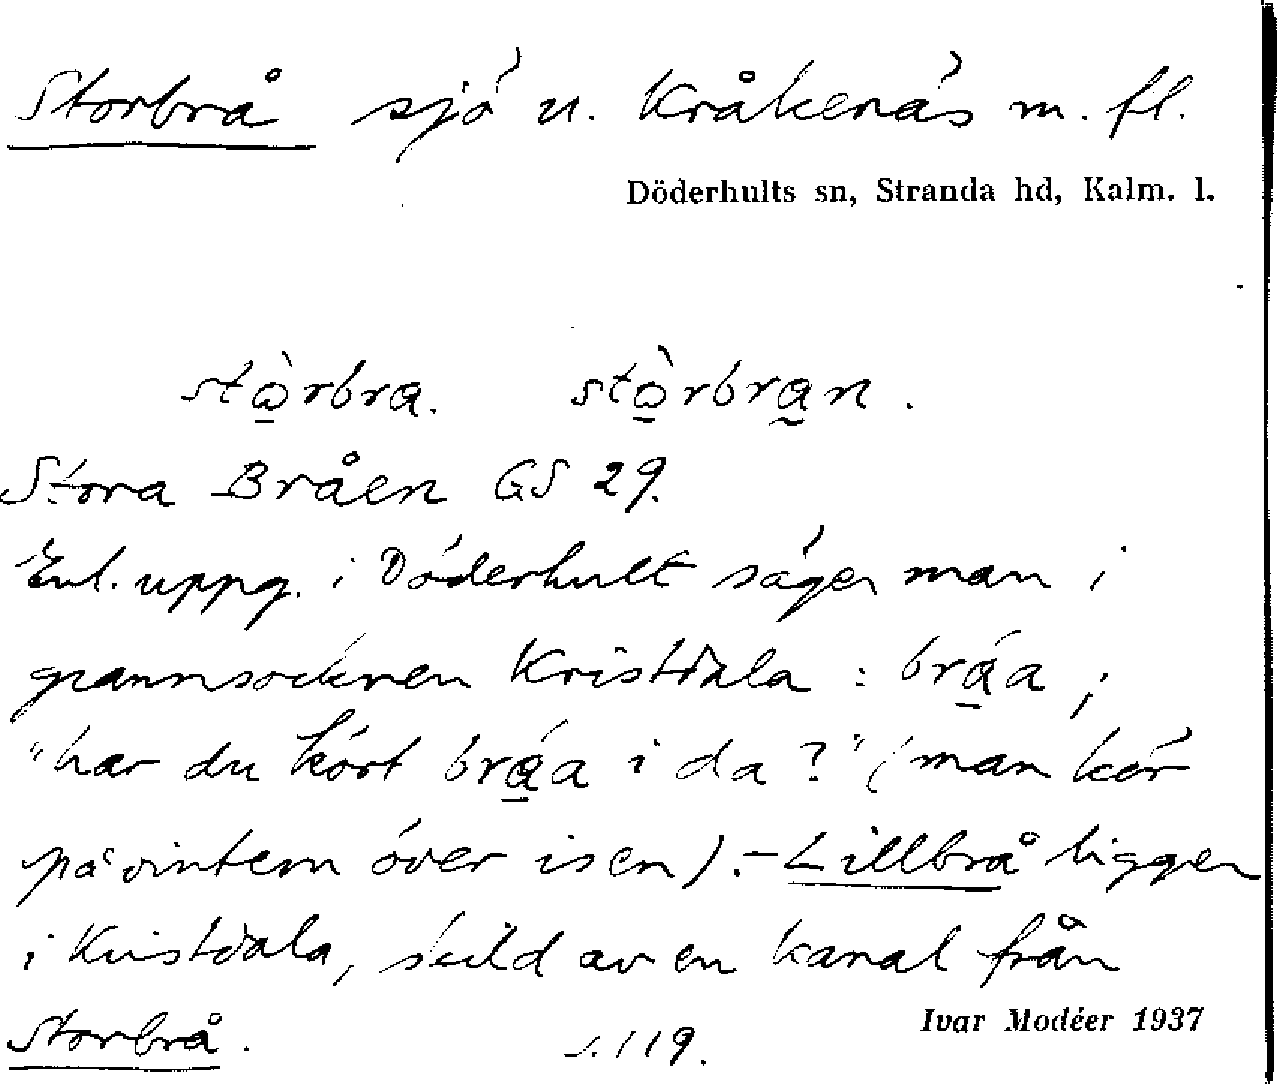 Storbrå sjö u. Kråkenäs m. fl.
Döderhults sn, Stranda hd, Kalm. l.
stò̱rbra. stò̱rbra̰n.
Stora Bråen GS 29.
Enl. uppg. i Döderhult säger man i
grannsocknen Kristdala: brá̱a;
"har du kört brá̱a i da?" (man kör
på vintern över isen). - Lillbrå ligger
i Kristdala, skild av en kanal från
Storbrå. s. 119.
Ivar Modéer 1937